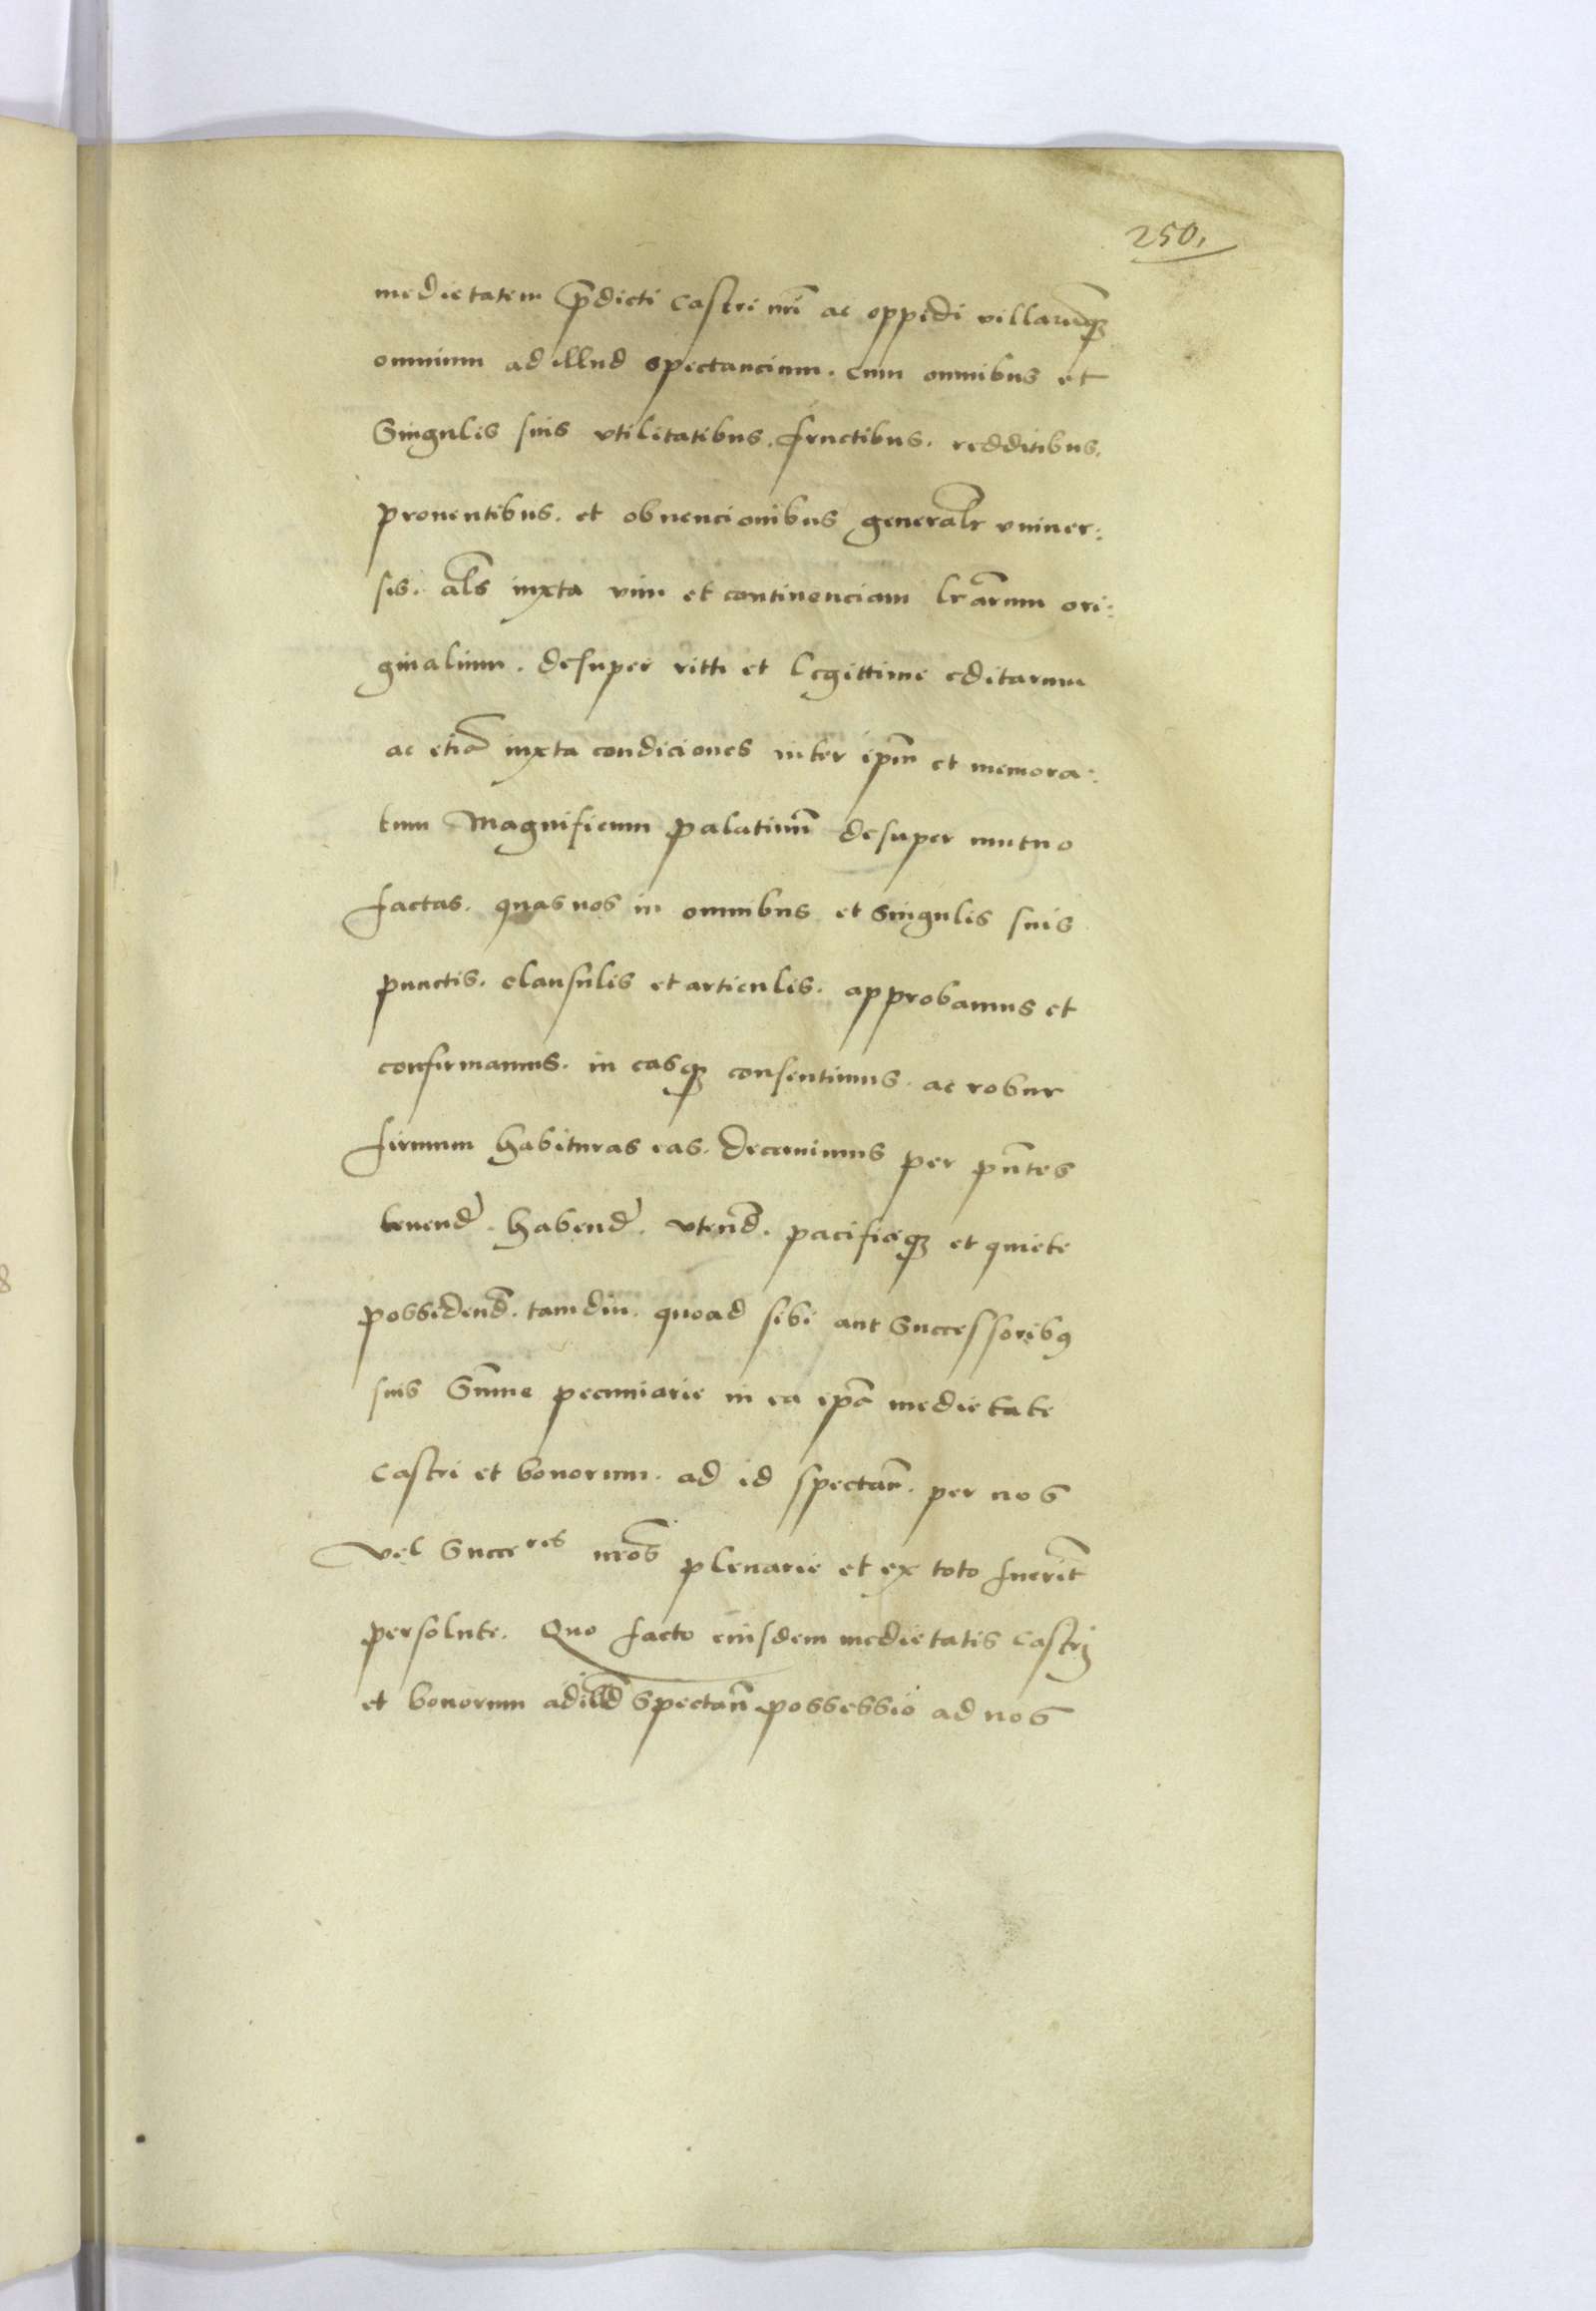 250.
medietatem p̄dicti Castri nr̄i ac oppidi villarūqꝫ
omnium ad illud spectancium. cum omnibus et
Singulis suis vtilitatibus. fructibus. redditibus.
prouentibus. et obuencionibus generalr̄ vniuer:
sis. al̄s iuxta vim et continenciam lr̄arum ori:
ginalium. desuper ritte et legittime editarum
ac etiā iuxta condiciones inter ip̄m et memora:
tum Magnificum palatinū desuper mutuo
factas. quas nos in omnibus et singulis suis
punctis. clausulis et articulis. approbamus et
confirmamus. in easqꝫ consentimus. ac robur
firmum habituras eas. decernimus per pn̄tes
tenend̄. habend̄. vtend̄. pacificeqꝫ et quiete
possidend̄. tamdiu. quoad sibi aut Successoribꝯ
suis Sum̄e pecuniarie in ea ip̄a medietate
Castri et bonorum. ad id spectan̄. per nos
vel Succeres nr̄os plenarie et ex toto fuerīt
persolute. Quo facto eiusdem medietatis Castrj
et bonorum ad illd̄ Spectan̄ possessio ad nos